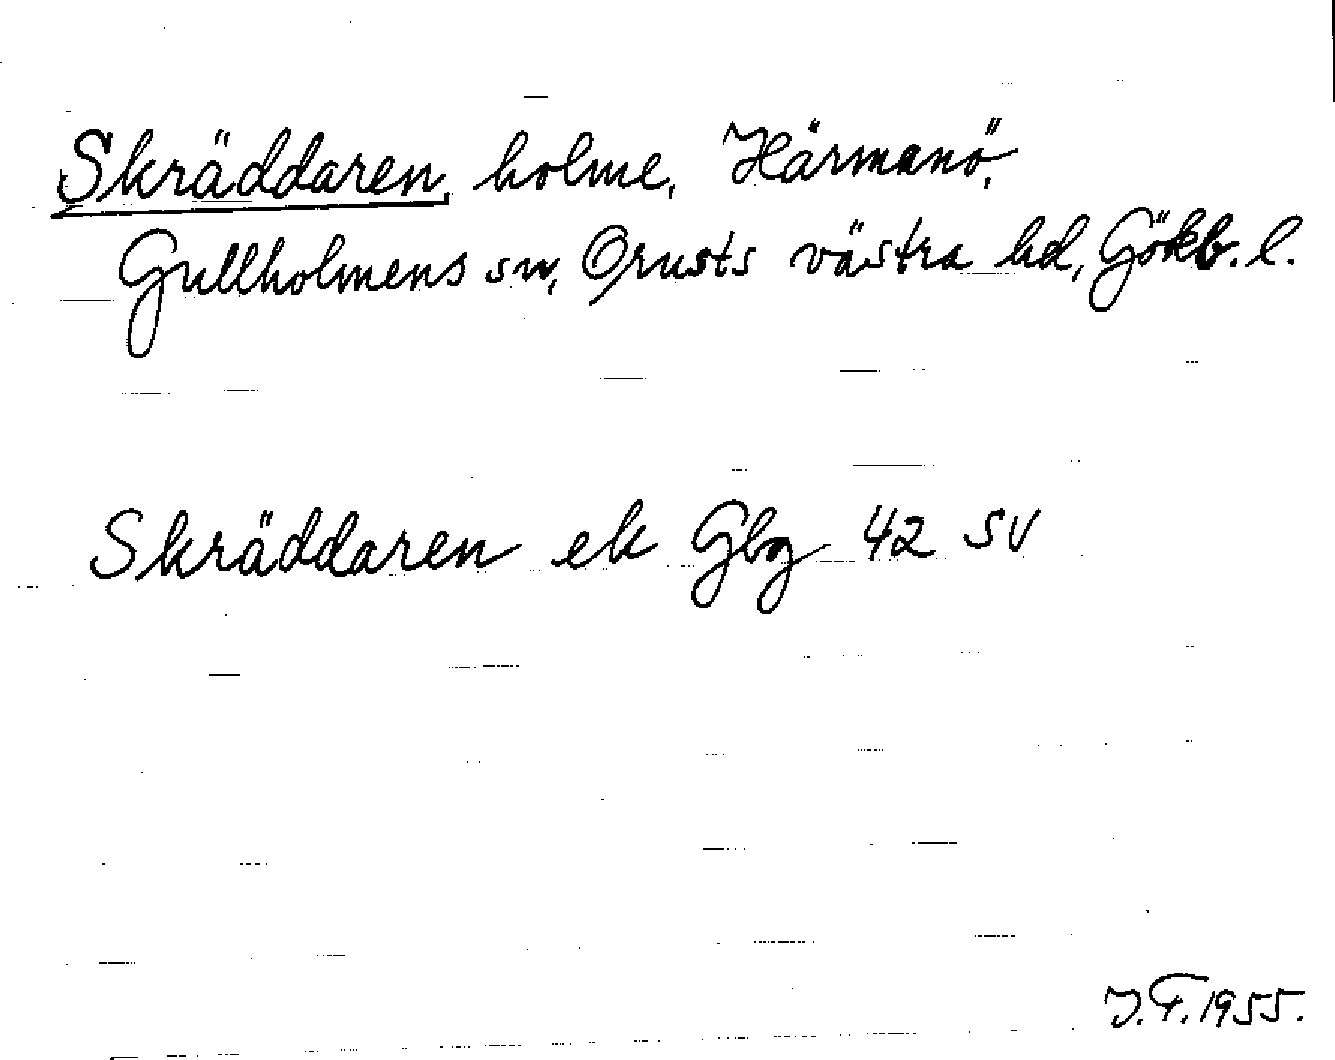 Skräddaren, holme, Härmanö,
Gullholmens sn, Orusts västra hd, Gökb. l.
Skräddaren ek Gbg 42 SV
J. F. 1955.